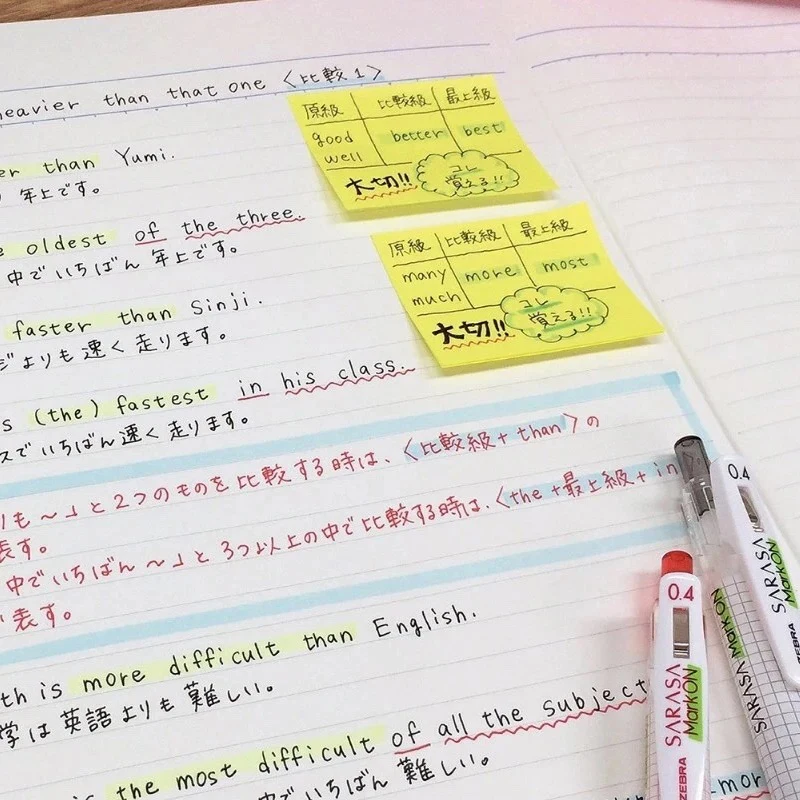 heavier than that one 〈比較1〉
原級 比較級 最上級
good better best
well
大切!! コレ
覚える!!
than Yumi.
年上です。
oldest of the three.
中でいちばん年上です。
原級 比較級 最上級
many more most
much
大切!! コレ
覚える!!
faster than Sinji.
よりも速く走ります。
(the) fastest in his class.
スでいちばん速く走ります。
りも〜」と2つのものを比較する時は、〈比較級+than〉の
表す。
中でいちばん〜」と3つ以上の中で比較する時は、〈the+最上級+in
表す。
th is more difficult than English.
学は英語よりも難しい。
the most difficult of all the subject
中でいちばん難しい。
0.4
SARASA
MarkON
ZEBRA
0.4
SARASA
MarkON
ZEBRA
SARASA MarkON